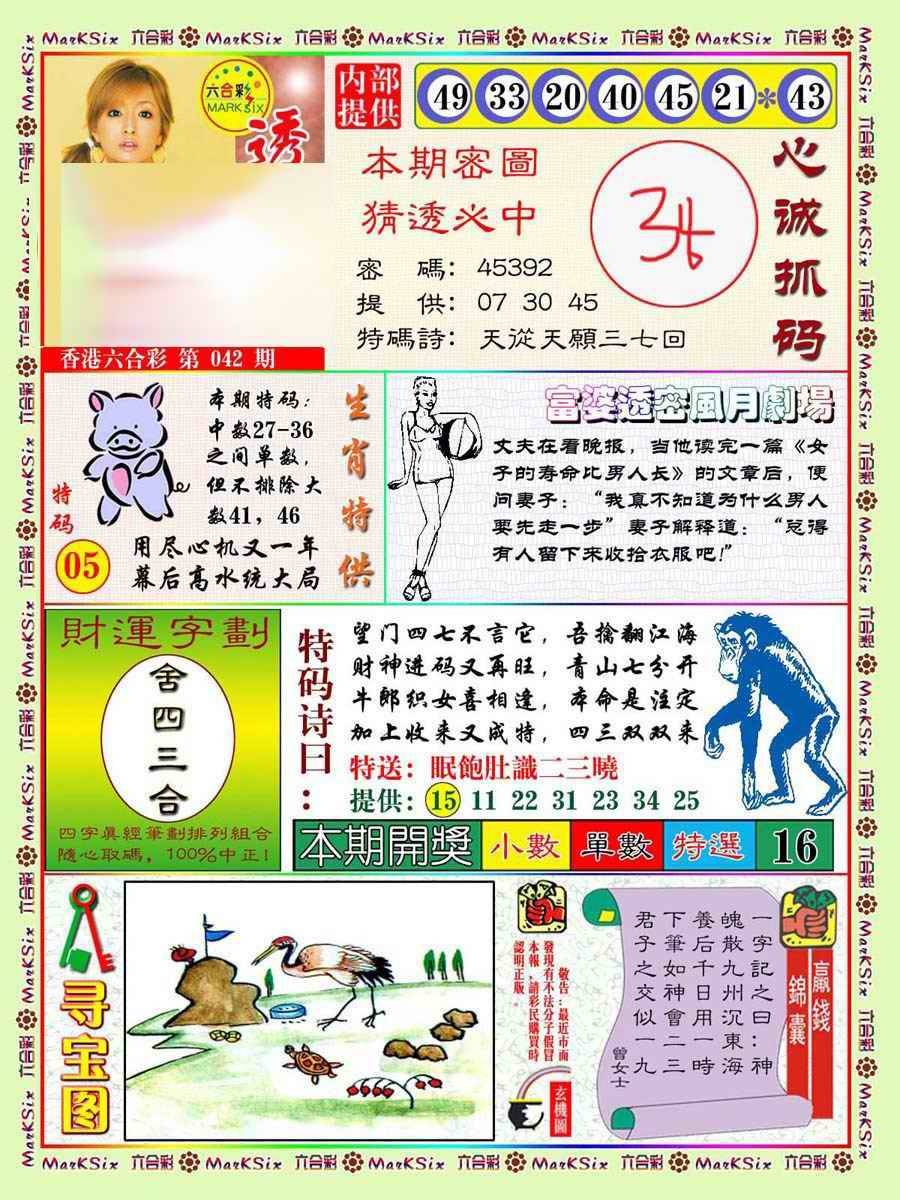 MarKSix 六合彩 MarKSix 六合彩 MarKSix 六合彩 MarKSix 六合彩 MarKSix 六合彩
六合彩
MARK SIX
诱
内部
提供
49 33 20 40 45 21 * 43
本期密圖
猜透必中
密 碼: 45392
提 供: 07 30 45
特碼詩: 天從天願三七回
心诚抓码
香港六合彩 第 042 期
特码
05
本期特码:
中数27-36
之间单数,
但不排除大
数41, 46
用尽心机又一年
幕后高水统大局
生肖特供
富婆透密風月劇場
丈夫在看晚报, 当他读完一篇《女
子的寿命比男人长》的文章后, 便
问妻子: “我真不知道为什么男人
要先走一步” 妻子解释道: “总得
有人留下来收拾衣服吧!”
財運字劃
舍四三合
四字真經筆劃排列組合
隨心取碼, 100%中正!
特码诗曰:
望门四七不言它, 吾擒翻江海
财神进码又再旺, 青山七分开
牛郎织女喜相逢, 本命是注定
加上收来又成特, 四三双双来
特送: 眠飽肚識二三曉
提供: 15 11 22 31 23 34 25
本期開獎 小數 單數 特選 16
寻宝图
敬告:最近市面
發現有不法分子假冒
本報,請彩民購買時
認明正版。
玄機圖
一字記之曰:神
魄散九州沉東海
養后千日用一時
下筆如神會二三
君子之交似一九
曾女士
贏錢
錦囊
MarKSix 六合彩 MarKSix 六合彩 MarKSix 六合彩 MarKSix 六合彩 MarKSix 六合彩